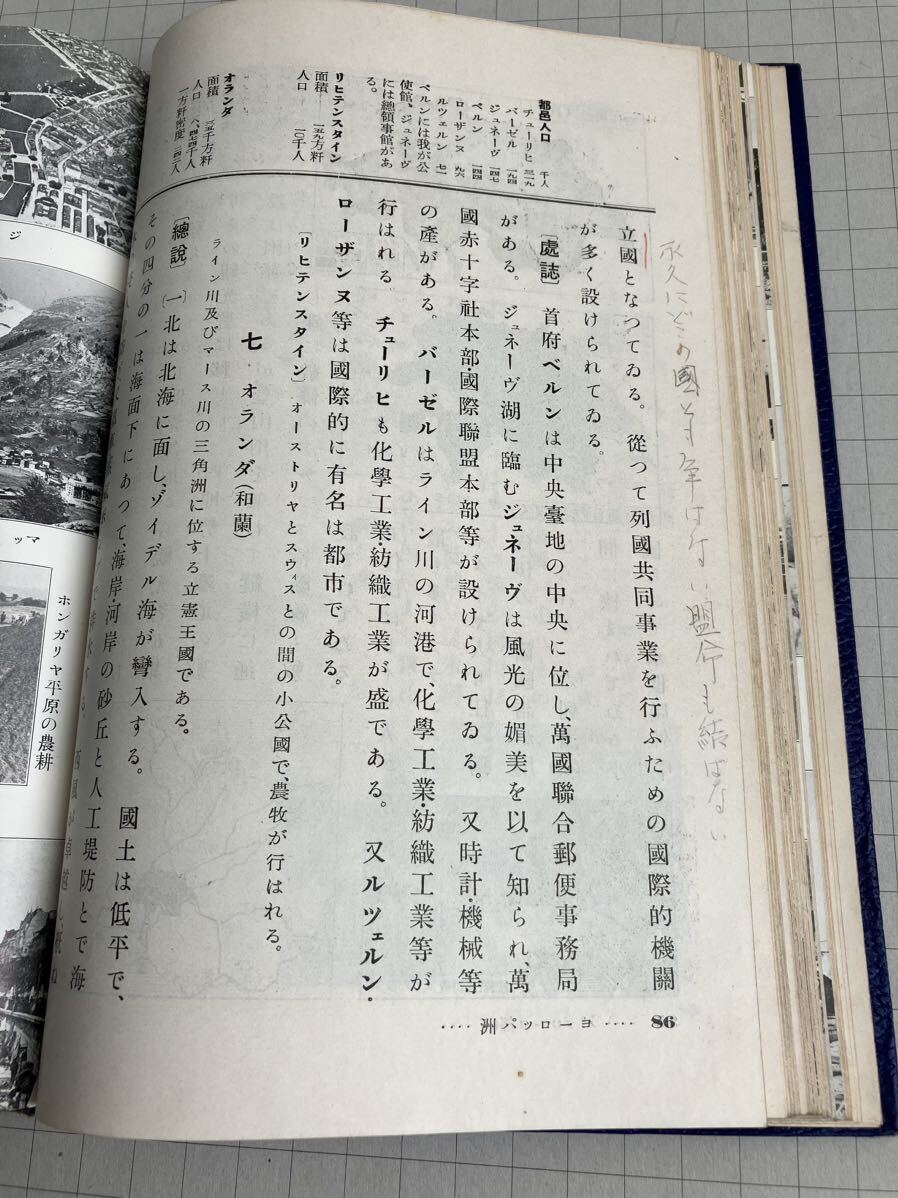 永久にどの國とも爭はない盟命も結ばない
立國となつてゐる。　從つて列國共同事業を行ふための國際的機關
が多く設けられてゐる。
〔處誌〕　首府ベルンは中央臺地の中央に位し、萬國聯合郵便事務局
がある。　ジュネーヴ湖に臨むジュネーヴは風光の媚美を以て知られ、萬
國赤十字社本部・國際聯盟本部等が設けられてゐる。　又時計・機械等
の產がある。　バーゼルはライン川の河港で、化學工業・紡織工業等が
行はれる　チューリヒも化學工業・紡織工業が盛である。　又ルツェルン・
ローザンヌ等は國際的に有名は都市である。
〔リヒテンスタイン〕　オーストリヤとスウィスとの間の小公國で、農牧が行はれる。
七　オランダ(和蘭)
ライン川及びマース川の三角洲に位する立憲王國である。
〔總說〕　〔一北は北海に面し、ゾイデル海が彎入する。　國土は低平で、
その四分の一は海面下にあつて、海岸・河岸の砂丘と人工堤防とで海
都邑人口　千人
チューリヒ　三一九
バーゼル　一九四
ジュネーヴ　一四七
ベルン　一四四
ローザンヌ　九六
ルツェルン　七一
ベルンには我が公
使館、ジュネーヴ
には總領事館があ
る。
リヒテンスタイン
面積　一五九方粁
人口　一〇千人
オランダ
面積　三五千方粁
人口　八、四七四千人
一方粁密度　二四二人
86　‥‥ヨーロッパ洲‥‥
ジ
マッ
ホンガリヤ平原の農耕